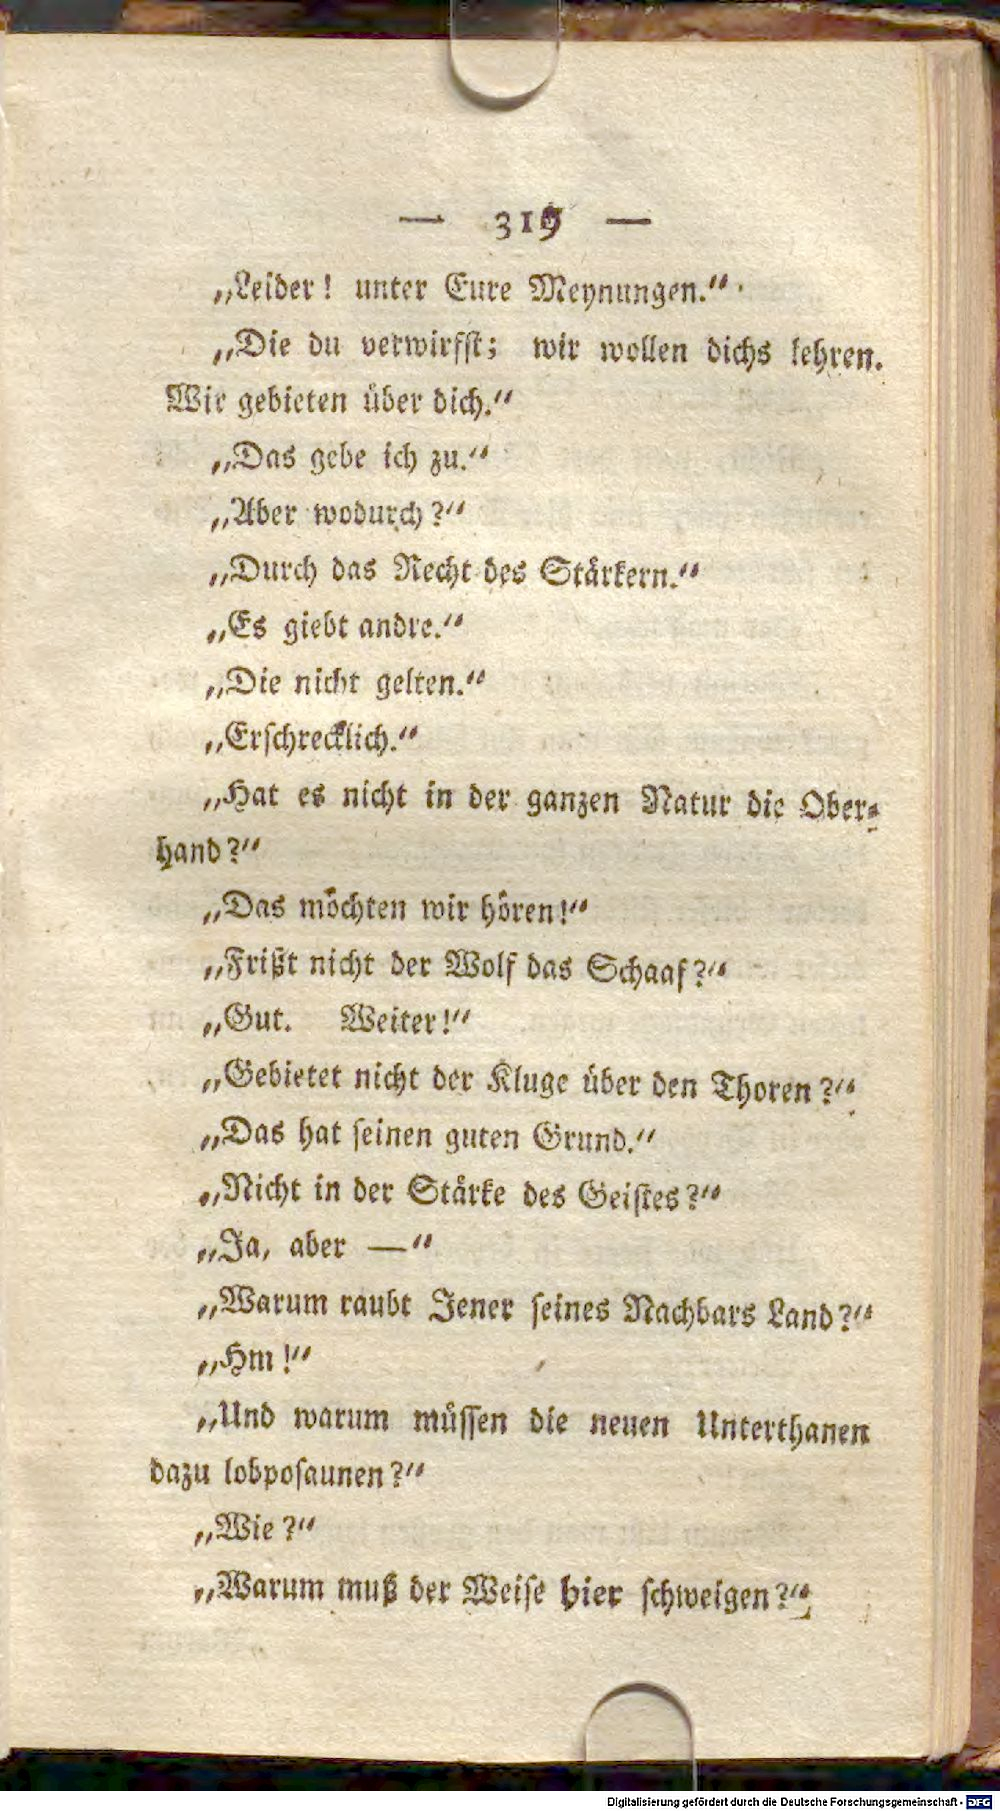 — 319 —
„Leider! unter Eure Meynungen.“
„Die du verwirfst; wir wollen dichs lehren.
Wir gebieten über dich.“
„Das gebe ich zu.“
„Aber wodurch?“
„Durch das Recht des Stärkern.“
„Es giebt andre.“
„Die nicht gelten.“
„Erschrecklich.“
„Hat es nicht in der ganzen Natur die Ober-
hand?“
„Das möchten wir hören!“
„Frißt nicht der Wolf das Schaaf?“
„Gut. Weiter!“
„Gebietet nicht der Kluge über den Thoren?“
„Das hat seinen guten Grund.“
„Nicht in der Stärke des Geistes?“
„Ja, aber —“
„Warum raubt Jener seines Nachbars Land?“
„Hm!“
„Und warum müssen die neuen Unterthanen
dazu lobposaunen?“
„Wie?“
„Warum muß der Weise hier schweigen?“
Digitalisierung gefördert durch die Deutsche Forschungsgemeinschaft - DFG